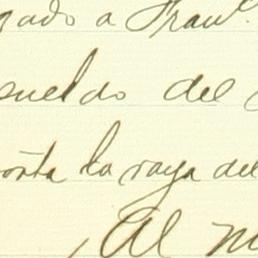 gado a Fran.
sueldo del
onta la raya del
Al m